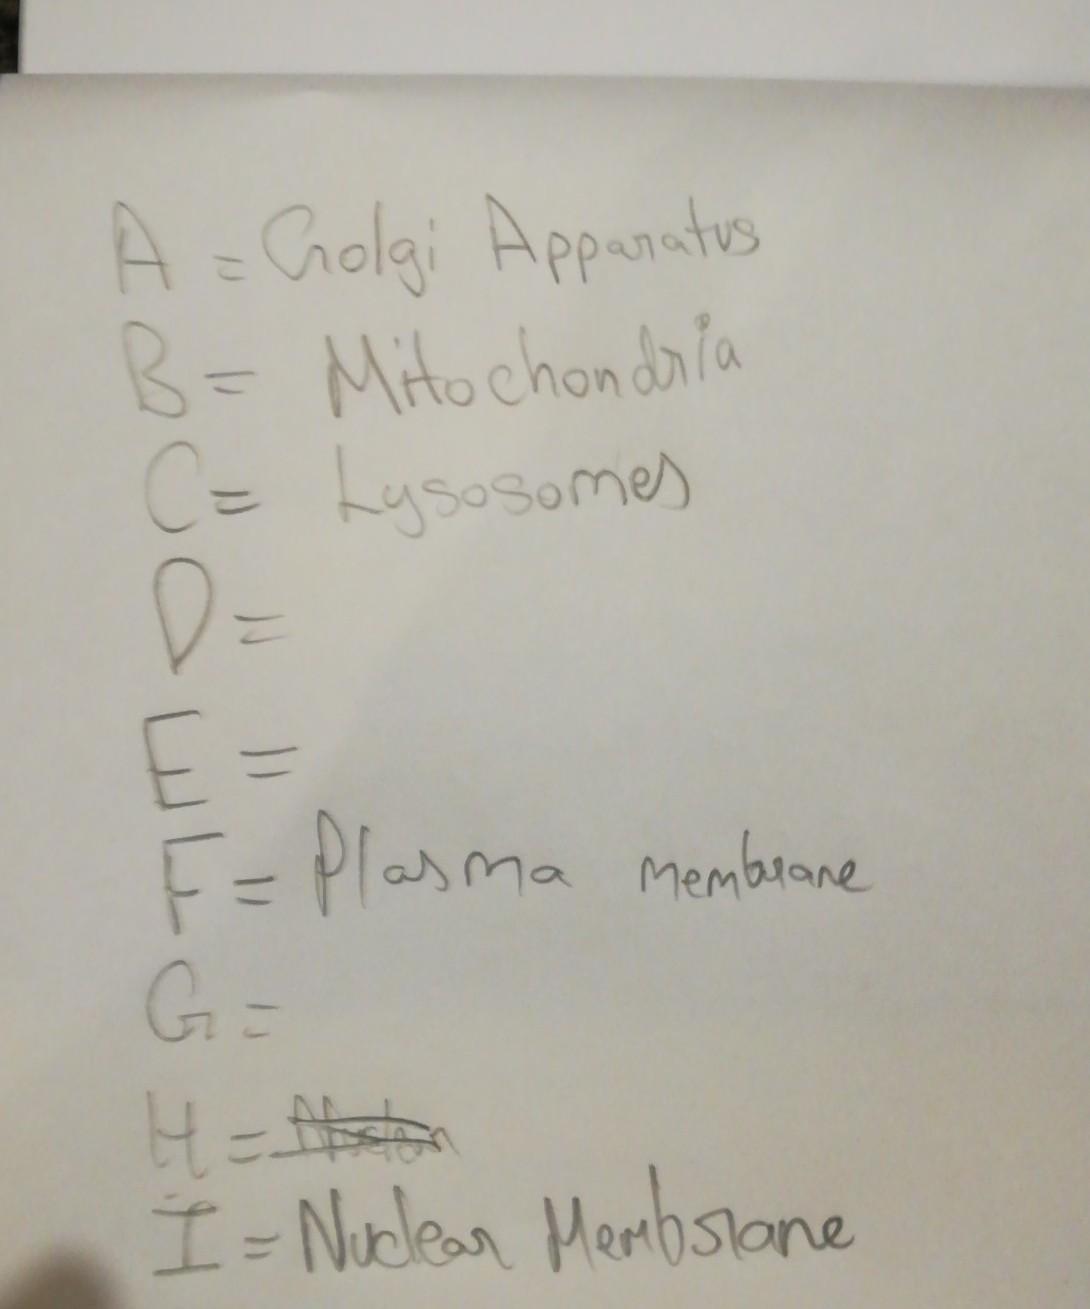 A = Golgi Apparatus
B = Mitochondria
C = Lysosomes
D =
E =
F = Plasma membrane
G =
H =
I = Nuclear Membrane